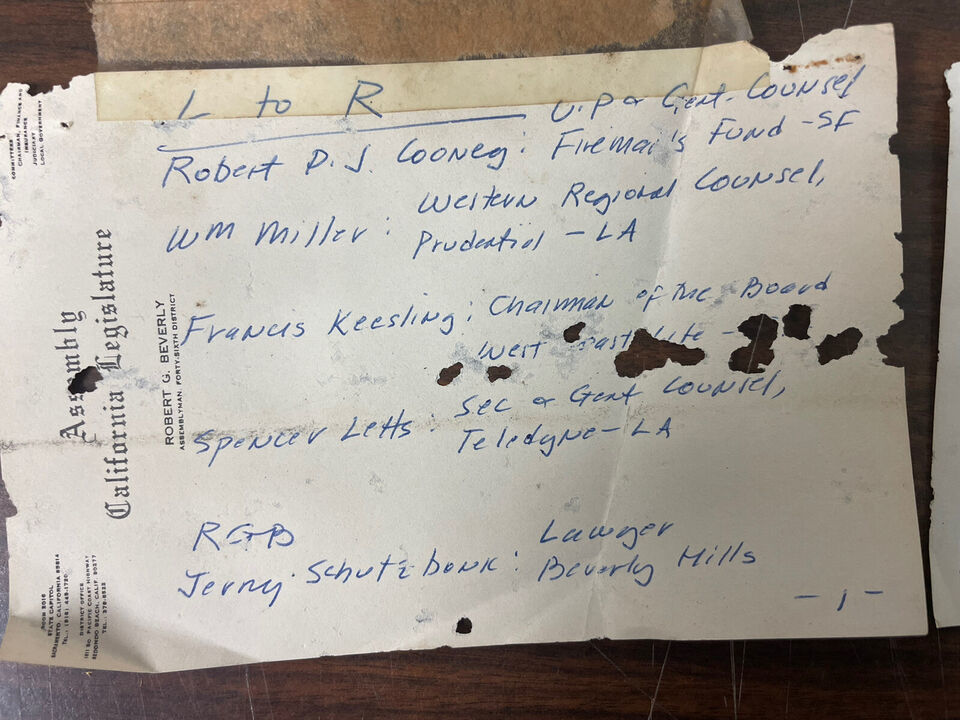 L to R
V.P & Genl. Counsel
Robert D. J. Cooney: Fireman's Fund - SF
Western Regional Counsel,
WM Miller: Prudential - LA
Francis Keesling: Chairman of the Board
West
Spencer Letts: Sec & Genl Counsel,
Teledyne - LA
RGB
Lawyer
Jerny Schutzbank: Beverly Hills
- 1 -
Assembly
California Legislature
ROBERT G. BEVERLY
ASSEMBLYMAN, FORTY-SIXTH DISTRICT
COMMITTEES
CHAIRMAN, FINANCE AND
INSURANCE
JUDICIARY
LOCAL GOVERNMENT
ROOM
STATE CAPITOL
SACRAMENTO, CALIFORNIA 95814
TEL.: (916) 445-1730
DISTRICT OFFICE
1611 SO. PACIFIC COAST HIGHWAY
REDONDO BEACH, CALIF. 90277
TEL.: